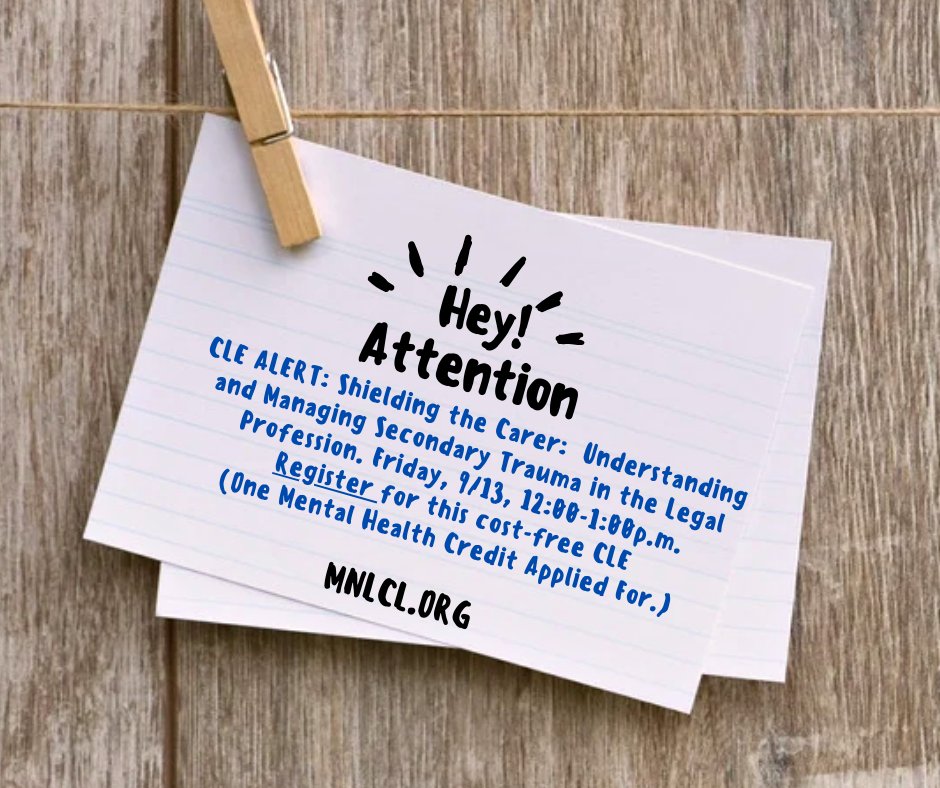 Hey!
Attention
CLE ALERT: Shielding the Carer: Understanding
and Managing Secondary Trauma in the Legal
Profession. Friday, 9/13, 12:00-1:00p.m.
Register for this cost-free CLE
(One Mental Health Credit Applied For.)
MNLCL.ORG